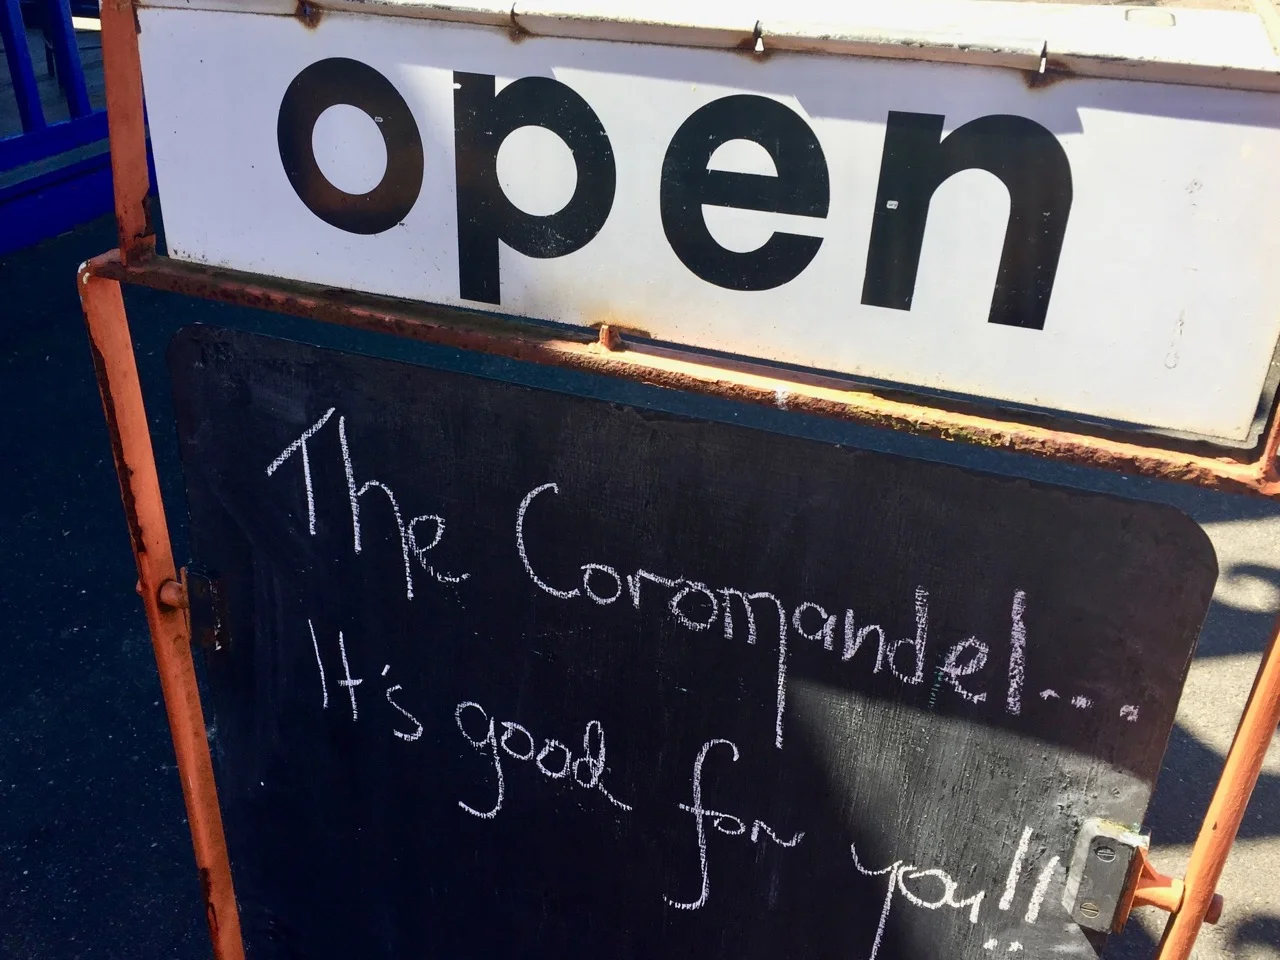 open
The Coromandel...
It's good for
you!!